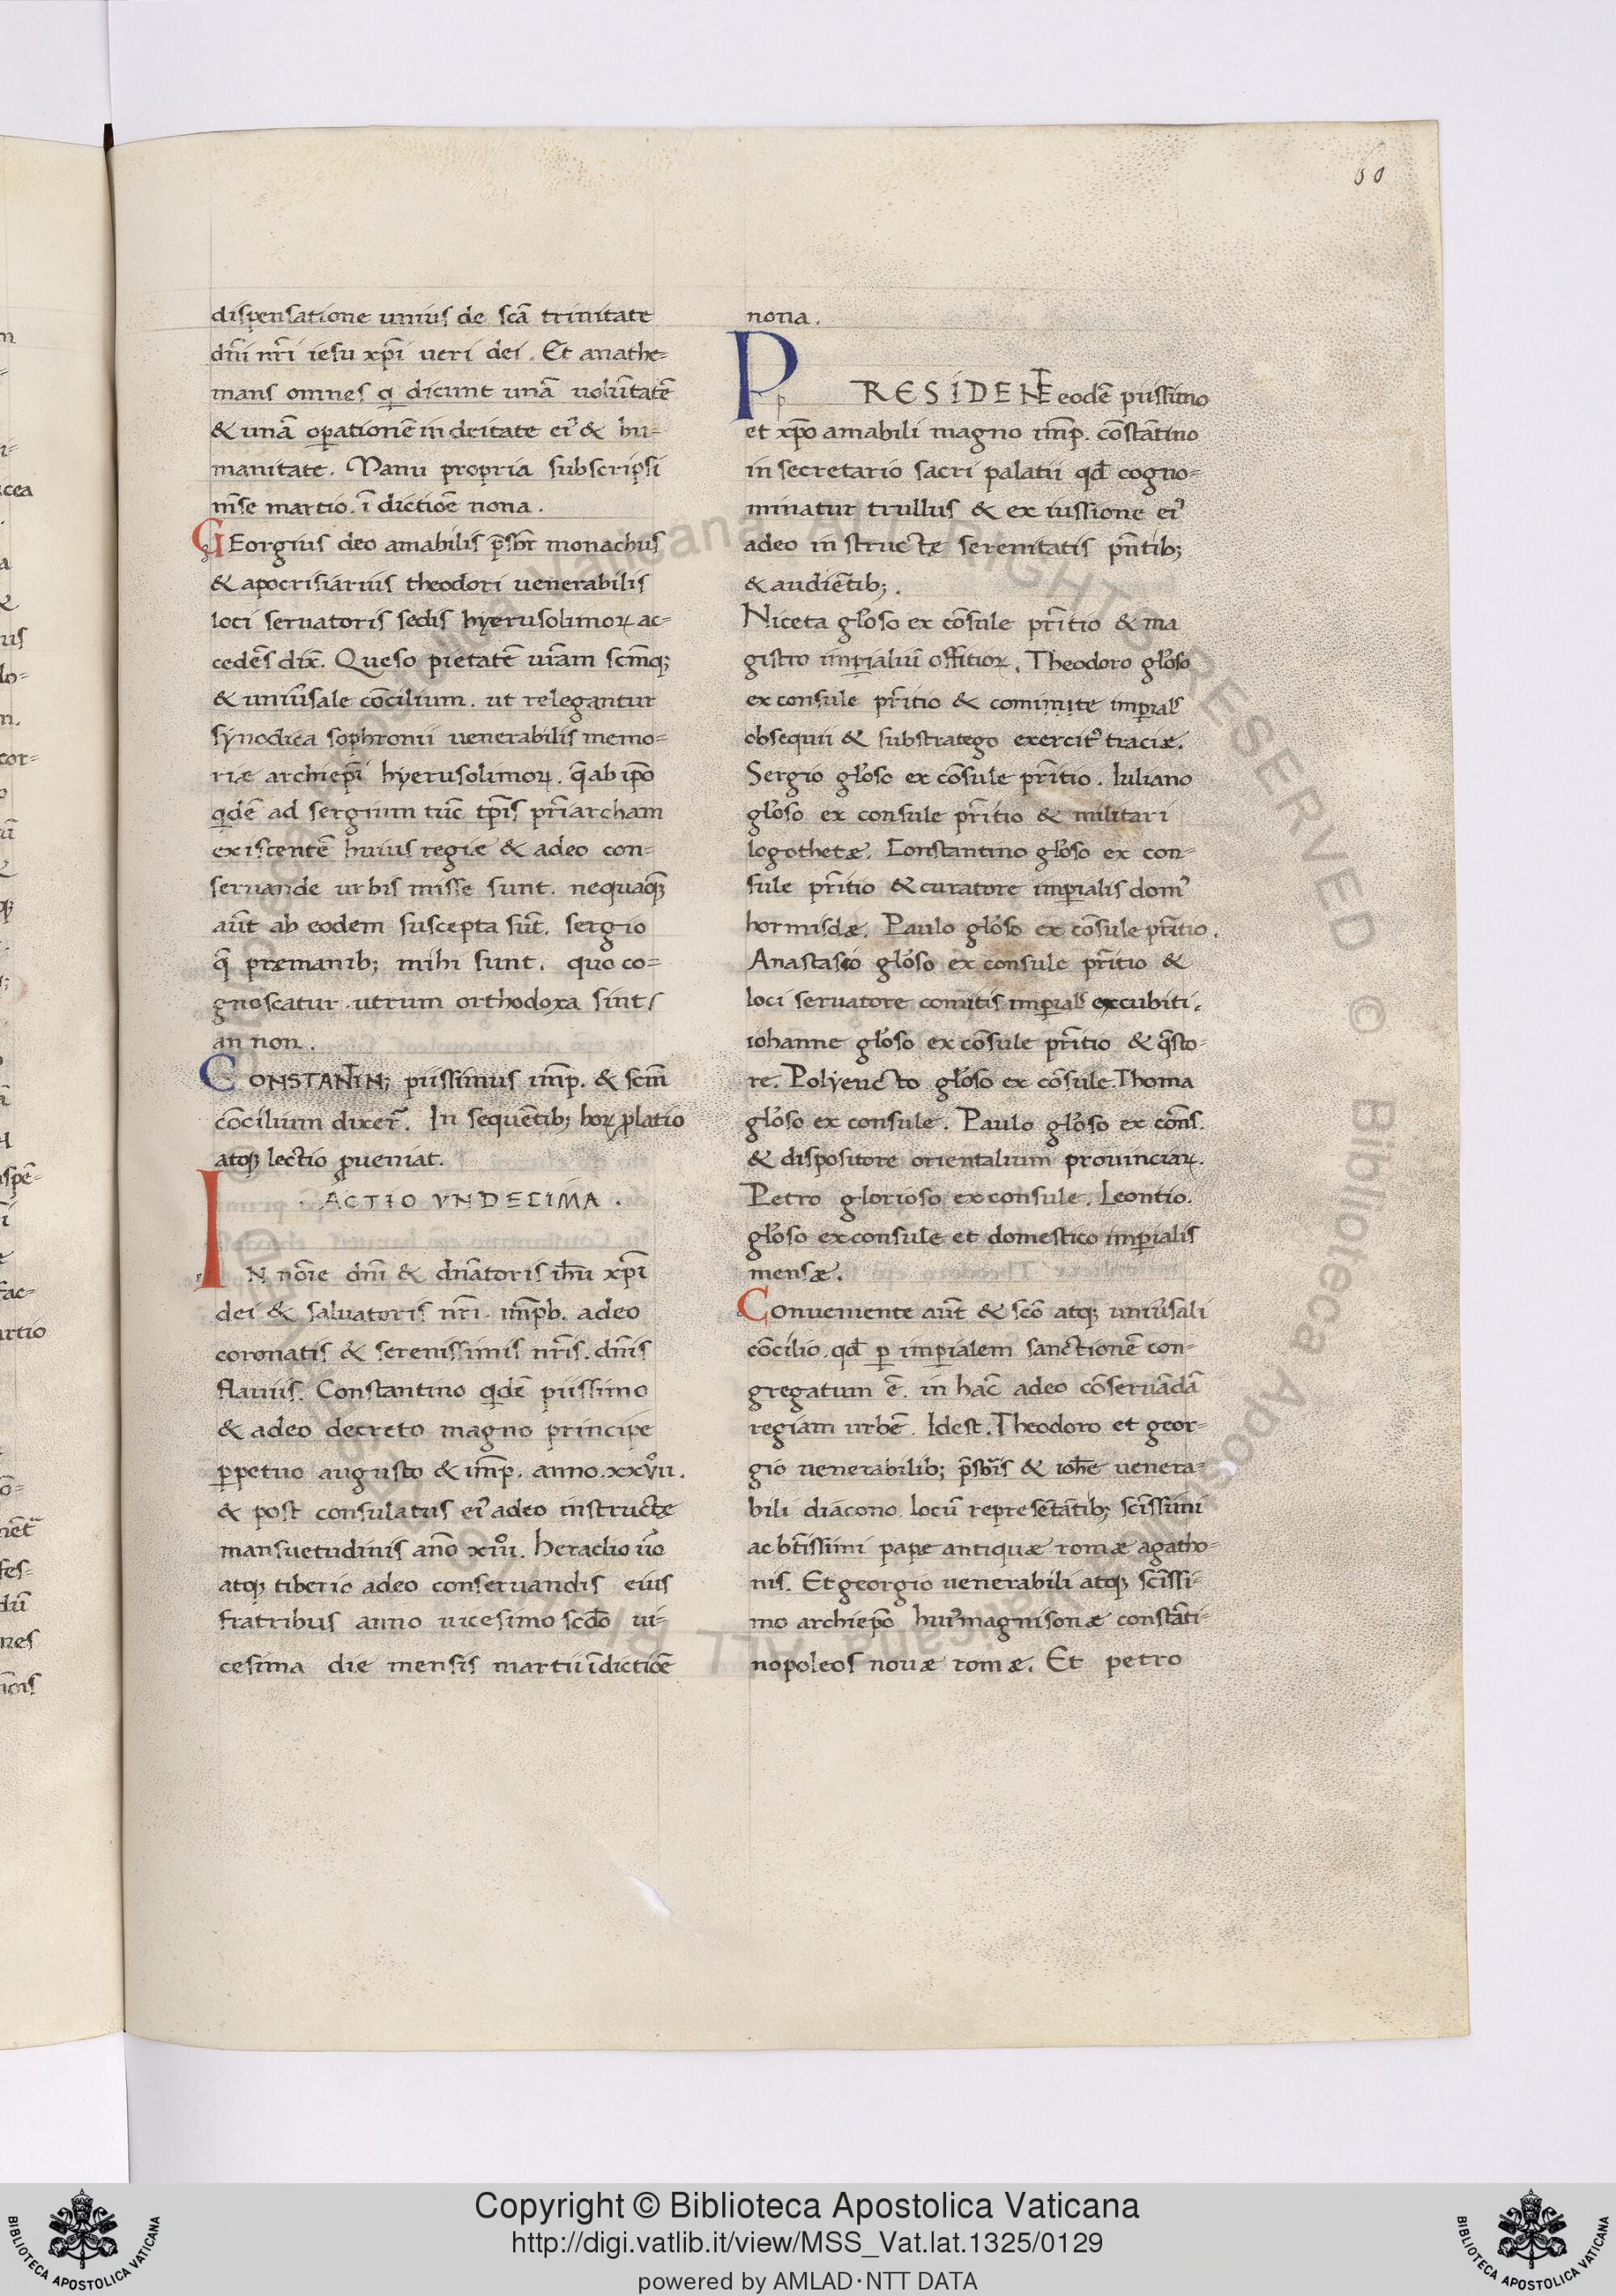 60
dispensatione unius de scā trinitate
dñi nr̃i iesu xp̄i ueri dei. Et anathe=
mans omnes q dicunt unā uolūtatē
& unā opationē in deitate ei' & hu=
manitate. Manu propria subscripsi
m̄se martio. ī dictiōe nona.
GEorgius deo amabilis p̄sbr̄ monachus
& apocrisiarius theodori uenerabilis
loci seruatoris sedis hyerusolimoꝝ ac=
cedēs dix̄. Queso pietatē ur̄am scm̄q;
& uniu'sale cōcilium. ut relegantur
synodica sophronii uenerabilis memo=
riæ archiep̄i hyerusolimoꝝ. q̄ ab ip̄o
qdē ad sergium tūc tp̄is pr̄iarcham
existentē huius regiæ & adeo con=
seruande urbis misse sunt. nequaq̄
aūt ab eodem suscepta sūt. sergio
q̄ premanib; mihi sunt. quo co=
gnoscatur utrum orthodoxa sint/
an non.
CONSTANTIN; piissimus im̄p. & scm̄
cōcilium dixer̄. In sequētib; hoꝝ platio
atq; lectio ꝓueniat.
. ACTIO VNDECIMA.
IN nōie dñi & dn̄atoris ih̄u xp̄i
dei & saluatoris nr̃i. im̄pb. adeo
coronatis & serenissimis nr̄is. dn̄is
flauiis. Constantino qdē piissimo
& adeo decreto magno principe
ꝑpetuo augusto & im̄p. anno. xxvii.
& post consulatus ei' adeo instructę
mansuetudinis año xiii. heraclio ūo
atq; tiberio adeo conseruandis eius
fratribus anno uicesimo scd̄o ui-
cesima die mensis martii īdictiōe
nona.
PRESIDENTE eodē piissimo
et xp̄o amabili magno im̄p. cōstātino
in secretario sacri palatii qđ cogno=
minatur trullus & ex iussione ei'
adeo instructæ serenitatis pn̄tib;
& audiētib;.
Niceta glōso ex cōsule pr̄itio & ma
gistro impialiū offitioꝝ. Theodoro glōso
ex consule pr̄itio & cominite impials
obsequii & substratego exercit' traciæ.
Sergio glōso ex cōsule pr̄itio. Iuliano
glōso ex consule pr̄itio & militari
logothetæ. Constantino glōso ex con-
sule pr̄itio & curatore impialis dom'
hormisdæ. Paulo glōso ex cōsule pr̄itio.
Anastasio glōso ex consule pr̄itio &
loci seruatore comitis impials excubiti.
iohanne glōso ex cōsule pr̄itio & q̄sto-
re. Polyeucto glōso ex cōsule. Thoma
glōso ex consule. Paulo glōso ex cōns.
& dispositore orientalium prouinciaꝝ.
Petro glorioso exconsule. Leontio.
glōso exconsule et domestico impialis
mensæ.
Conueniente aūt & scō atq; uniu'sali
cōcilio. qđ p impialem sanctionē con-
gregatum ē. in hac̄ adeo cōseruādā
regiam urbē. Idest. Theodoro et geor-
gio uenerabilib; p̄sbr̄is & ioh̄e uenera-
bili diacono. locū represētātib; scīssimi
ac bt̄issimi pape antiquæ romæ agatho-
nis. Et georgio uenerabili atq; scīssi-
mo archiep̄o hui' magnisonæ constāti-
nopoleos nouæ romæ. Et petro
Copyright © Biblioteca Apostolica Vaticana
http://digi.vatlib.it/view/MSS_Vat.lat.1325/0129
powered by AMLAD·NTT DATA
BIBLIOTECA APOSTOLICA VATICANA
BIBLIOTECA APOSTOLICA VATICANA